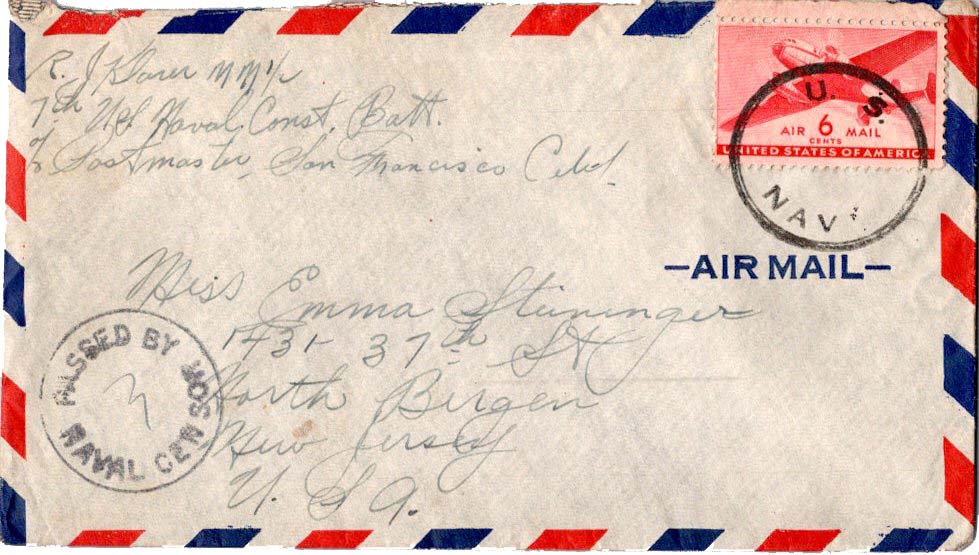 R. J. Klarer MM1/c
7th U.S. Naval Const. Batt.
c/o Postmaster, San Francisco Calif.
U. S.
NAVY
AIR 6 MAIL
CENTS
UNITED STATES OF AMERICA
—AIR MAIL—
Miss Emma Steininger
1431- 37th St
North Bergen
New Jersey
U. S. A.
PASSED BY
NAVAL CENSOR